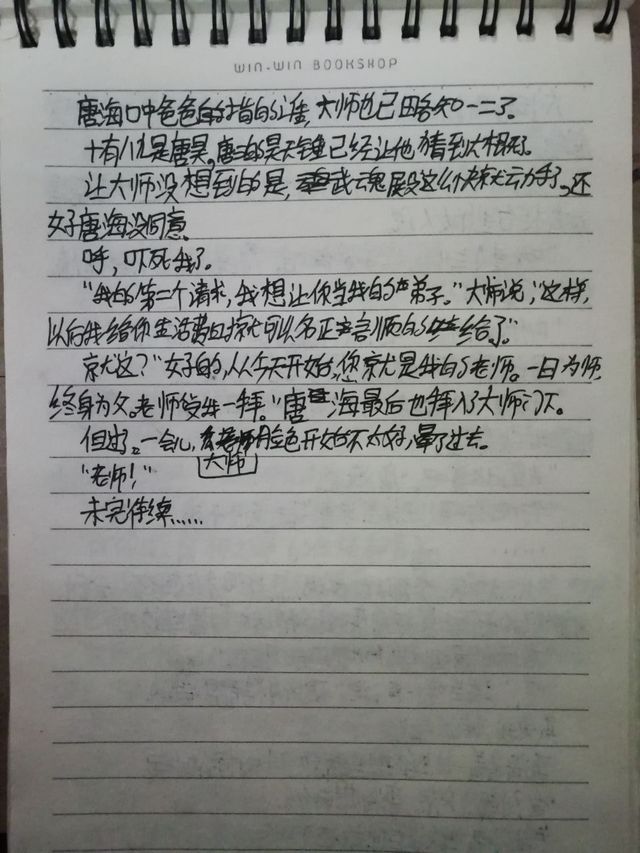 WIN-WIN BOOKSHOP
唐海口中爸爸的指的谁,大师也已略知一二了。
十有八九是唐昊。唐海的昊天锤已经让他猜到大概了。
让大师没想到的是,武魂殿这么快就动手了。还
好唐海没同意。
呼,吓死我了。
“我的第二个请求,我想让你当我的弟子。”大师说,“这样,
以后我给你生活费也就可以名正言顺的给了”。
就这?”好的,从今天开始,您就是我的老师。一日为师,
终身为父。老师受我一拜。”唐海最后也拜入了大师门下。
但过了一会儿,脸色开始不太好,晕了过去。
大师
“老师!”
未完待续……